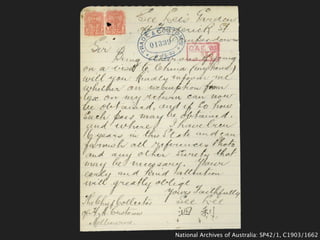 See Lee's Garden
St
Sir
Being desirous of going
on a visit to China (my home)
will you kindly inform me
whether an exemption from
tax on my return can now
be obtained, and if so how
such pass may be obtained
and where. I have been
16 years in this State and can
furnish all references Photo
and any other surety that
may be necessary. Your
early and kind attention
will greatly oblige
Yours Faithfully
See Lee
The Collector
of H.M. Customs
Melbourne
National Archives of Australia: SP42/1, C1903/1662